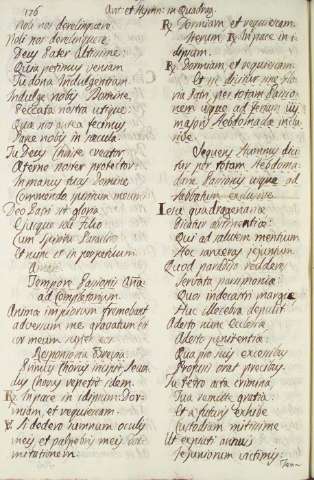 176 Ant. et Hymni in Quadrag.
Noli nos derelinquere
Noli nos derelinquere
Deus Pater Altissime
Quia petimus veniam
Tu dona Indulgentiam.
Indulge nobis Domine
Peccata nostra utique:
Quia nos antea fecimus
Parce nobis in sæcula.
Tu Deus Christe creator
Æterno noster protector
In manus tuas Domine
Commendo spiritum meum
Deo Patri sit gloria
Ejusque soli Filio
Cum Spiritu Paraclito
Et nunc et in perpetuum
Amen.
Tempore Passionis Aña
ad Completorium.
Anima impiorum fremebant
adversum me, gravatum est
cor meum super eos
Responsoria Brevia.
℟ In pace in idipsum. Dor-
miam, et requiescam.
℣ Si dedero somnum oculis
meis et palpebris meis dor-
mitationem.
℟ Dormiam et requiescam.
Iterum ℟ In pace in i-
dipsum.
℟ Dormiam et requiescam.
Et sic dicitur sine Glo-
ria Patri, per totam Passio-
nem usque ad feriam iiij
majoris Hebdomadæ inclu-
sive.
Sequens Hymnus dici-
tur per totam Hebdoma-
dam Passionis usque ad
sabbatum exclusive
Iota quadragenariæ
Dicatur authenticæ:
Qui ad salutem mentium
Hoc sanxeras jejunium
Quod paradiso redderet
Servata parsimonia:
Quo inderam
Huc illecebra depulit
Adesto nunc Ecclesiæ
Adesto pœnitentiæ:
Qua pro suis excessibus
Profusis orat precibus.
Tu retro acta crimina,
Tua remitte gratia:
Et a futuris exhibe
Custodiam mitissime
Ut expiati annuis
Jejuniorum victimis